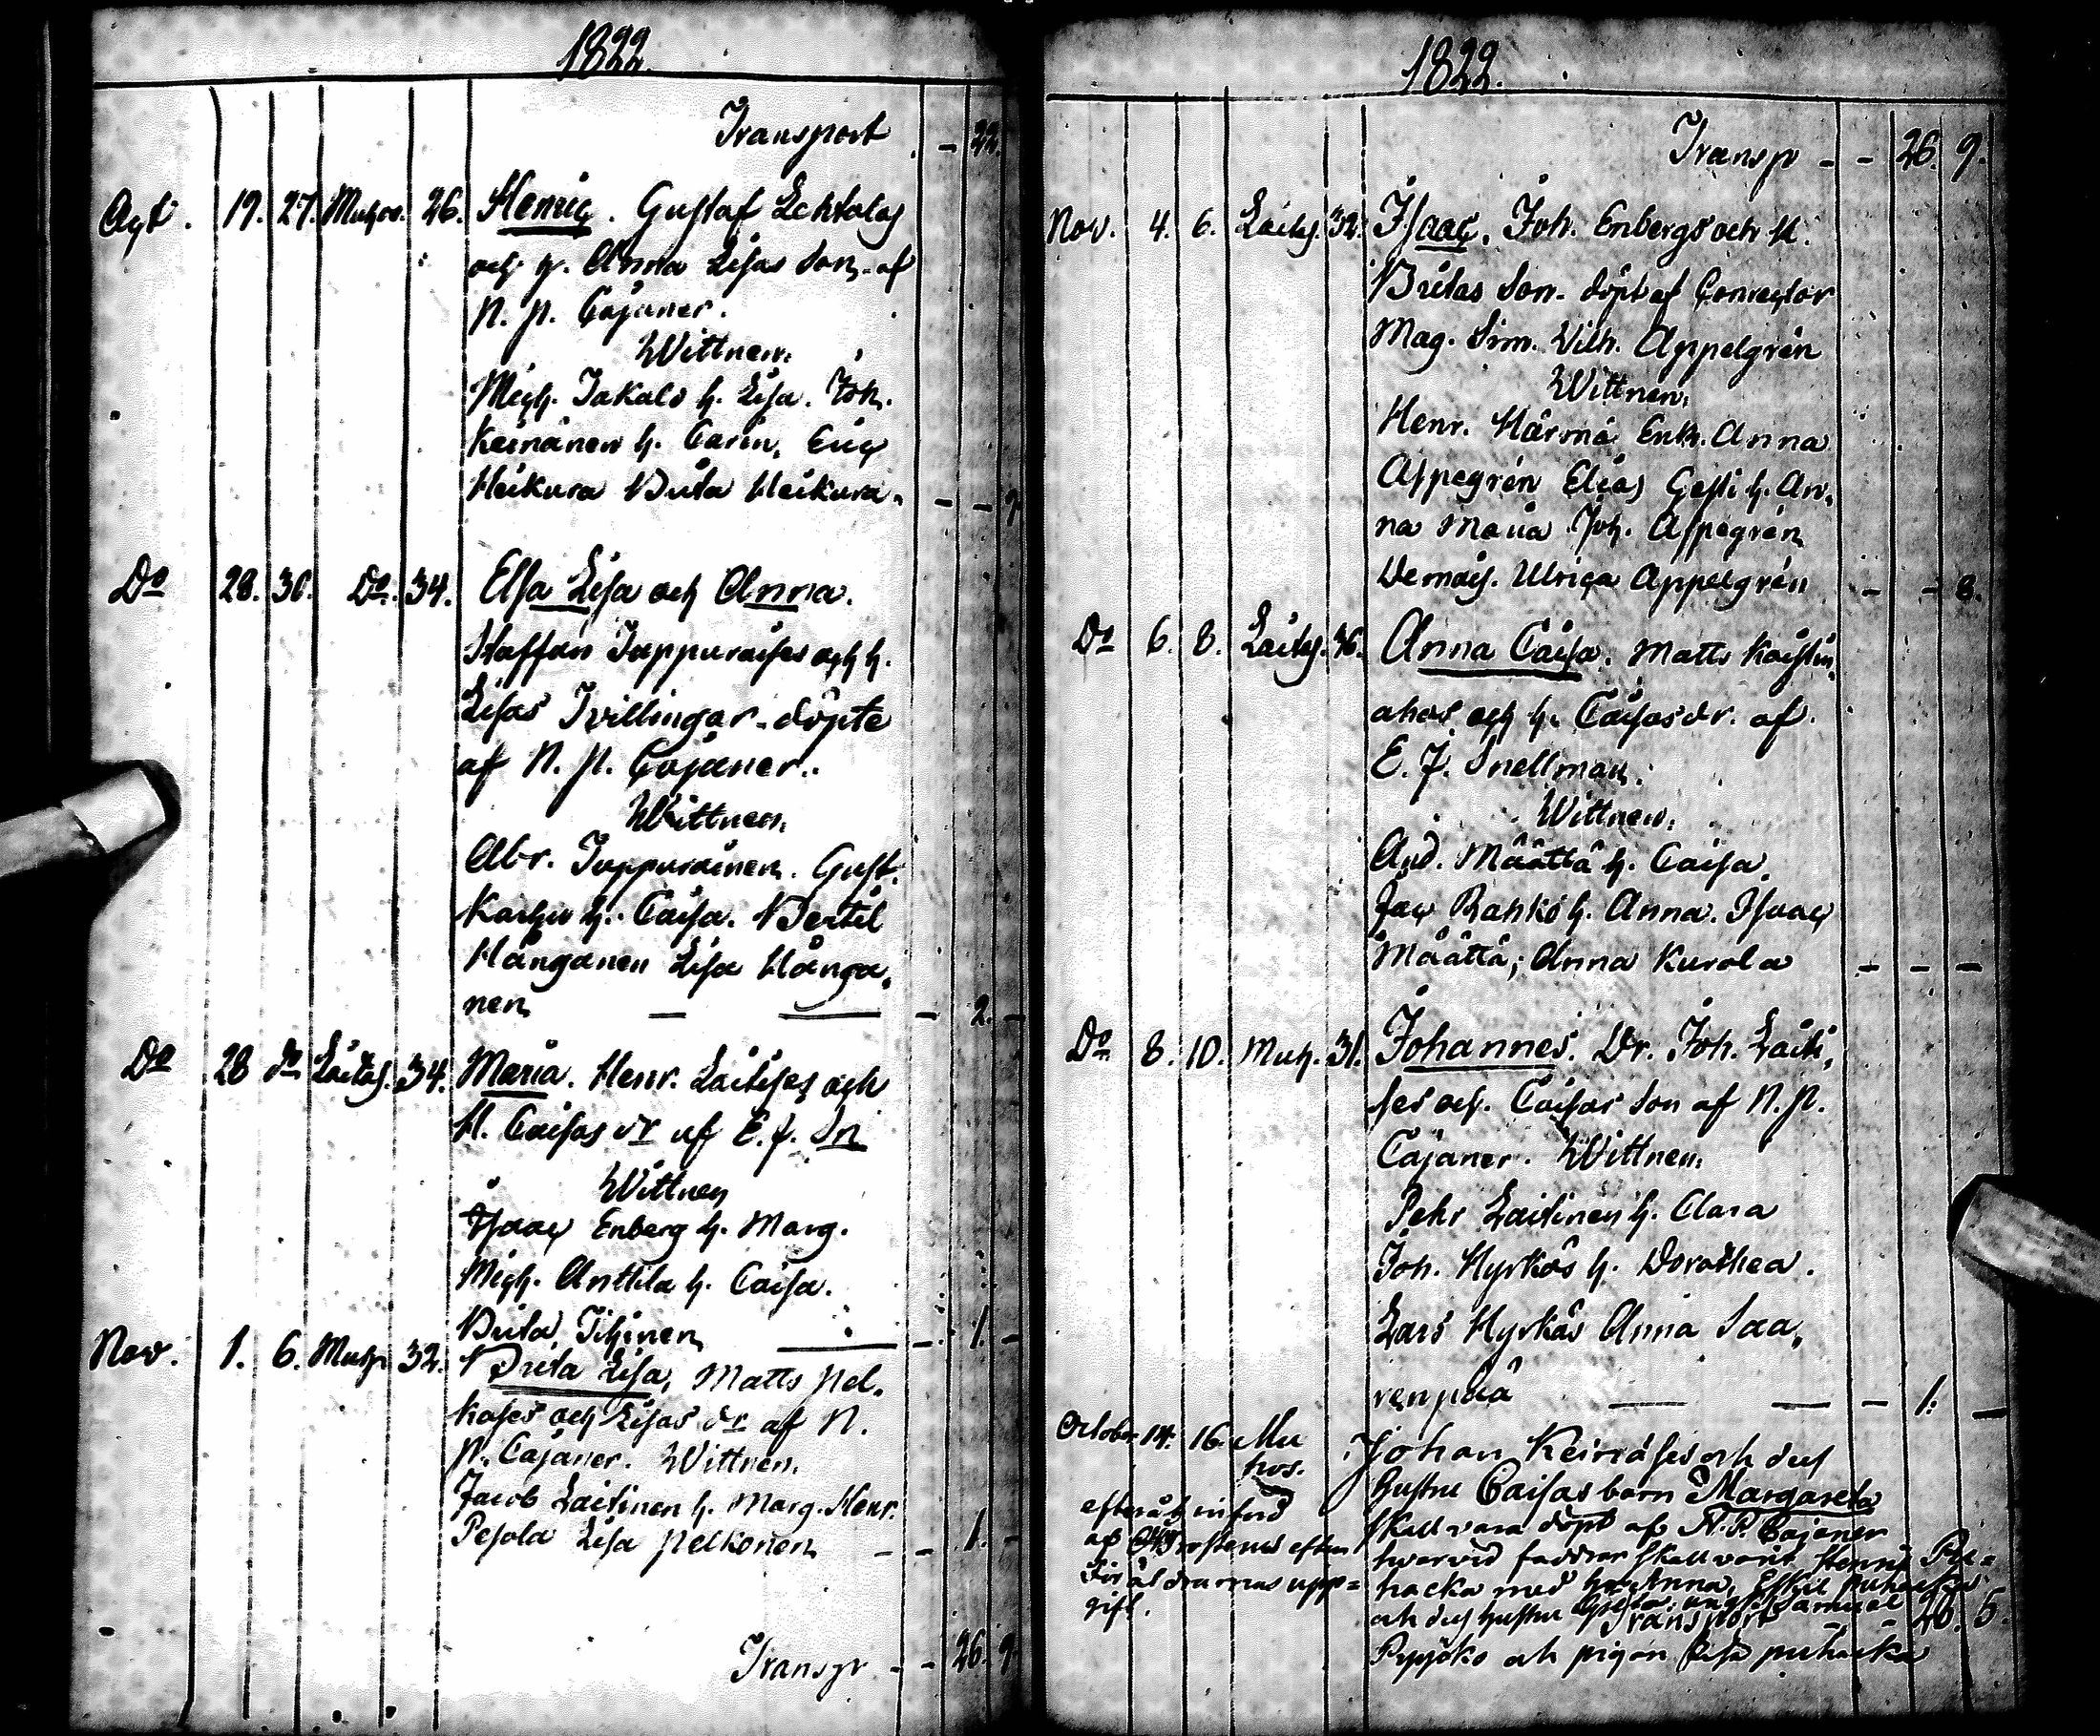 1822.
Transport - 22.
Agt. 19. 27. Muhos. 26. Henric. Gustaf Lehtolas
och h. Anna Lisas Son. af
N. P. Cajaner.
Wittnen.
Mich. Jakals h. Lisa. Joh.
Keinänen h. Carin, Eric
Heikura Brita Heikura. - -
Do 28. 30. Do. 34. Elsa Lisa och Anna.
Staffan Juppuraises och h.
Lisas Tvillingar. döpte
af N. P. Cajaner.
Wittnen.
Abr. Juppurainen. Gust.
Karhu h. Caisa. Bertil
Hånganen Lisa Hånga,
nen — — - 2. -
Do 28 do Laitas. 34. Maria. Henr. Laitises och
H. Caisas dr af E. J. Sn
Wittnen
Isaac Enberg h. Marg.
Mich. Anttila h. Caisa.
Brita Tihinen — - 1. -
Nov. 1. 6. Muh. 32. Brita Lisa, Matts Pel,
koses och Lisas dr af N.
P. Cajaner. Wittnen.
Jacob Laitinen h. Marg. Henr.
Pesola Lisa Pelkonen - - 1. -
Transp - - 26. 9
1822.
Transp - - 26. 9.
Nov. 4. 6. Laitas. 32. Isaac. Joh. Enbergs och H.
Britas Son. döpt af Conrector
Mag. Sim. Wilh. Appelgrén
Wittnen.
Henr. Härmä Enk. Anna
Appegrén Elias Gesti h. An,
na Maria Joh. Appegrén
Demois. Ulrica Appelgrén - - 8.
Do 6. 8. Laitas. 36. Anna Caisa. Matts Kaistin,
ahos och h. Caisas dr. af
E. J. Snellman.
Wittnen.
And. Määttä h. Caisa.
Jac Rahko h. Anna. Isaac
Määttä, Anna Kurola - - -
Do 8. 10. Muh. 31. Johannes. Dr. Joh. Laiti,
ses och. Caisas Son af N. P.
Cajaner. Wittnen.
Pehr Laitinen h. Clara
Joh. Hyrkäs h. Dorothea.
Lars Hyrkäs Anna Saa,
renpää — — - 1. -
October 14. 16. Mu
hos.
Johan Keinäses och des
hustru Caisas barn Margareta
skall vara döpt af N. P. Cajaner
hvarvid faddrar skall varit Henric Pu=
hacka med h. Anna,
och des hustru Samuel
Pyykö och pigan Lisa puhacka
efteråt införd
af Prostens efter
Föräldrarnas upp=
gift.
Transport - - 26. 5.